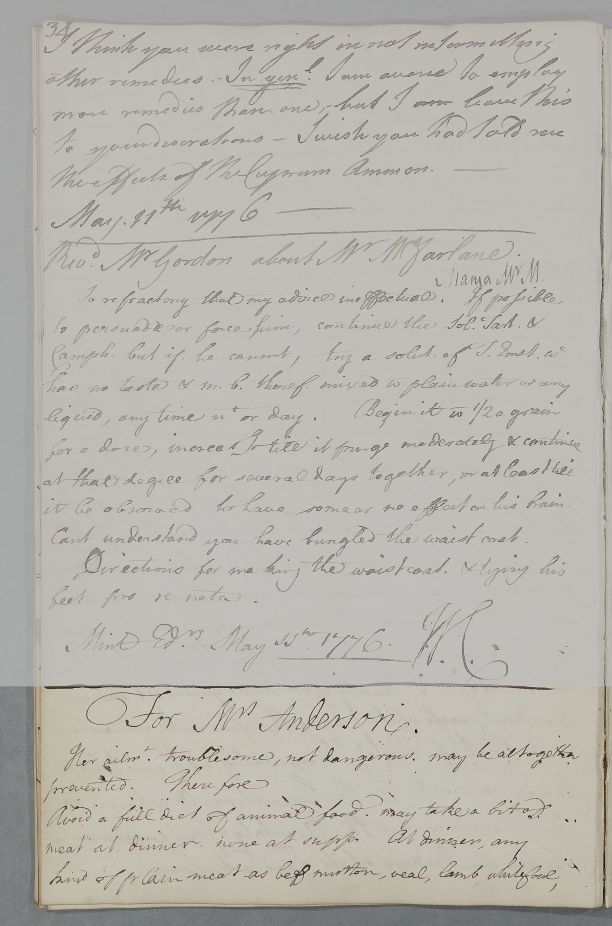 34
I think you were right in not intermitting
other remedies. - In gen.l I am averse to employ
more remedies than one, - but I am leave this
to your discretions - I wish you had told me
the effects of the Cuprum Ammon. —
May. 11th 1776 —
Revd. Mr Gordon about Mr McFarlane.
Mania Mr M
So refractory that my advice ineffectual. If possible,
to persuade or force him, continue the Sol. Tart. &
Camph. but if he cannot, try a solut. of T. Emet. wc
has no taste & m. b. theref. mixed w plain water or any
liquid, any time nt or day. Begin it w 1/2 a grain
for a dose, increas till it purge moderately & continue
at that degree for several days together, or at least till
it be observed to have some or no effect on his brain.
Cant understand you have bungled the waist coat.
Directions for making the waistcoat. & tying his
feet pro re nata.
Mint Edr. May 11th 1776. WC
For Mrs Anderson.
Her ailmt. troublesome, not dangerous. may be altogether
prevented. Therefore
Avoid a full diet of animal food. may take a bit of
meat at dinner. none at supp. At dinner, any
kind of plain meat as beef mutton, veal, lamb, white fowl,